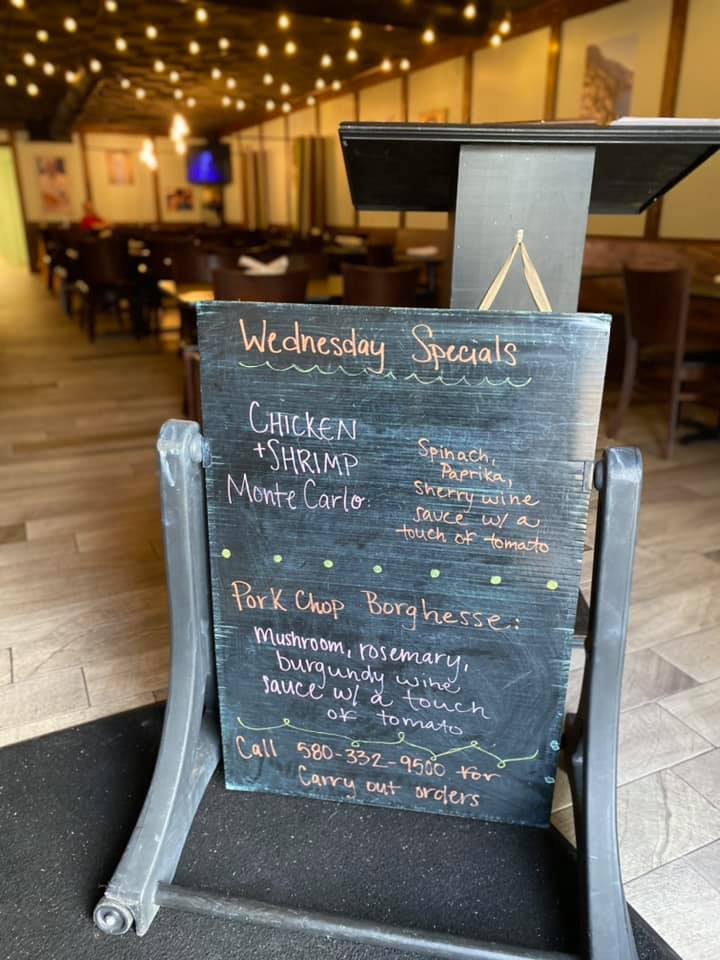 Wednesday Specials
CHICKEN
+SHRIMP
Monte Carlo:
Spinach,
Paprika,
Sherry wine
sauce w/ a
touch of tomato
Pork Chop Borghesse:
mushroom, rosemary,
burgundy wine
sauce w/ a touch
of tomato
Call 580-332-9500 for
Carry out orders